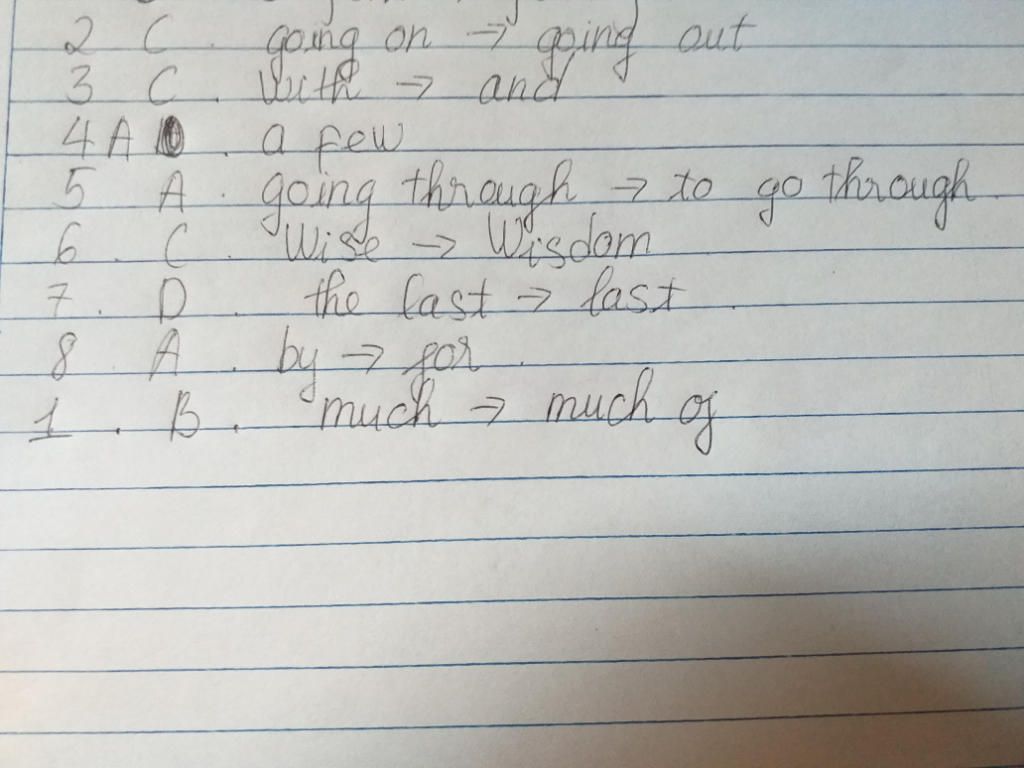 2 C. going on → going out
3 C. With → and
4 A . a few
5 A. going through → to go through
6. C. Wise → Wisdom
7. D. the last → last.
8 A. by → for.
1. B. much → much of